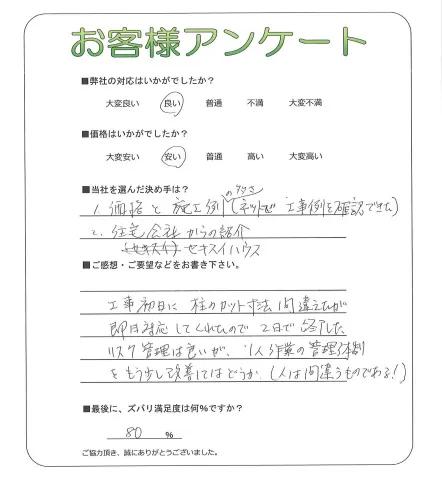 お客様アンケート
■弊社の対応はいかがでしたか？
大変良い 良い 普通 不満 大変不満
■価格はいかがでしたか？
大変安い 安い 普通 高い 大変高い
■当社を選んだ決め手は？
の多さ
1. 価格と施工例（ネットで工事例を確認できた）
2. 住宅会社からの紹介
セキスイハウス
■ご感想・ご要望などをお書き下さい。
工事初日に柱のカット寸法間違えたが
即日対応してくれたので2日で完了した
リスク管理は良いが、1人作業の管理体制
をもう少し改善してはどうか（人は間違うものである！）
■最後に、ズバリ満足度は何%ですか？
80 %
ご協力頂き、誠にありがとうございました。